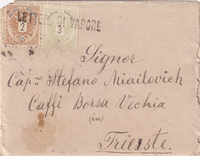 LETTERE DI VAPORE
2
3
Signor
Cap.o Stefano Miailovich
Caffè Borsa Vechia
(in)
Trieste.